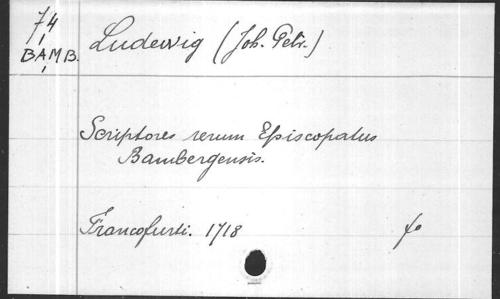 74
BAMB.
Ludewig (Joh. Petr.)
Scriptores rerum Episcopatus
Bambergensis.
Francofurti. 1718
fo